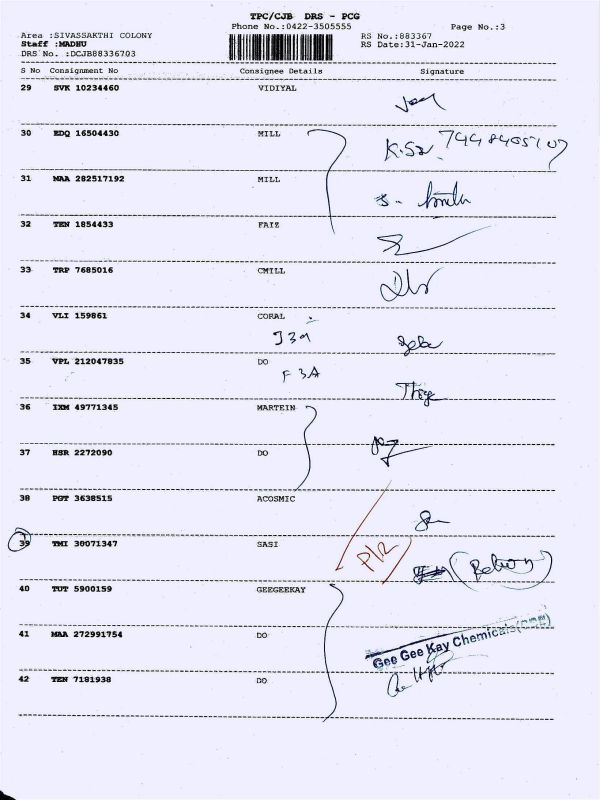 TPC/CJB DRS - PCG
Phone No.:0422-3505555 Page No.:3
Area :SIVASSAKTHI COLONY RS No.:883367
Staff :MADHU RS Date:31-Jan-2022
DRS No. :DCJB88336703
S No Consignment No Consignee Details Signature
29 SVK 10234460 VIDIYAL
30 EDQ 16504430 MILL
31 MAA 282517192 MILL
32 TEN 1854433 FAIZ
33 TRP 7685016 CMILL
34 VLI 159861 CORAL
35 VPL 212047835 DO
F 3A
36 IXM 49771345 MARTEIN
37 HSR 2272090 DO
38 PGT 3638515 ACOSMIC
39 TMI 30071347 SASI
40 TUT 5900159 GEEGEEKAY
41 MAA 272991754 DO
Gee Gee Kay Chemicals
42 TEN 7181938 DO